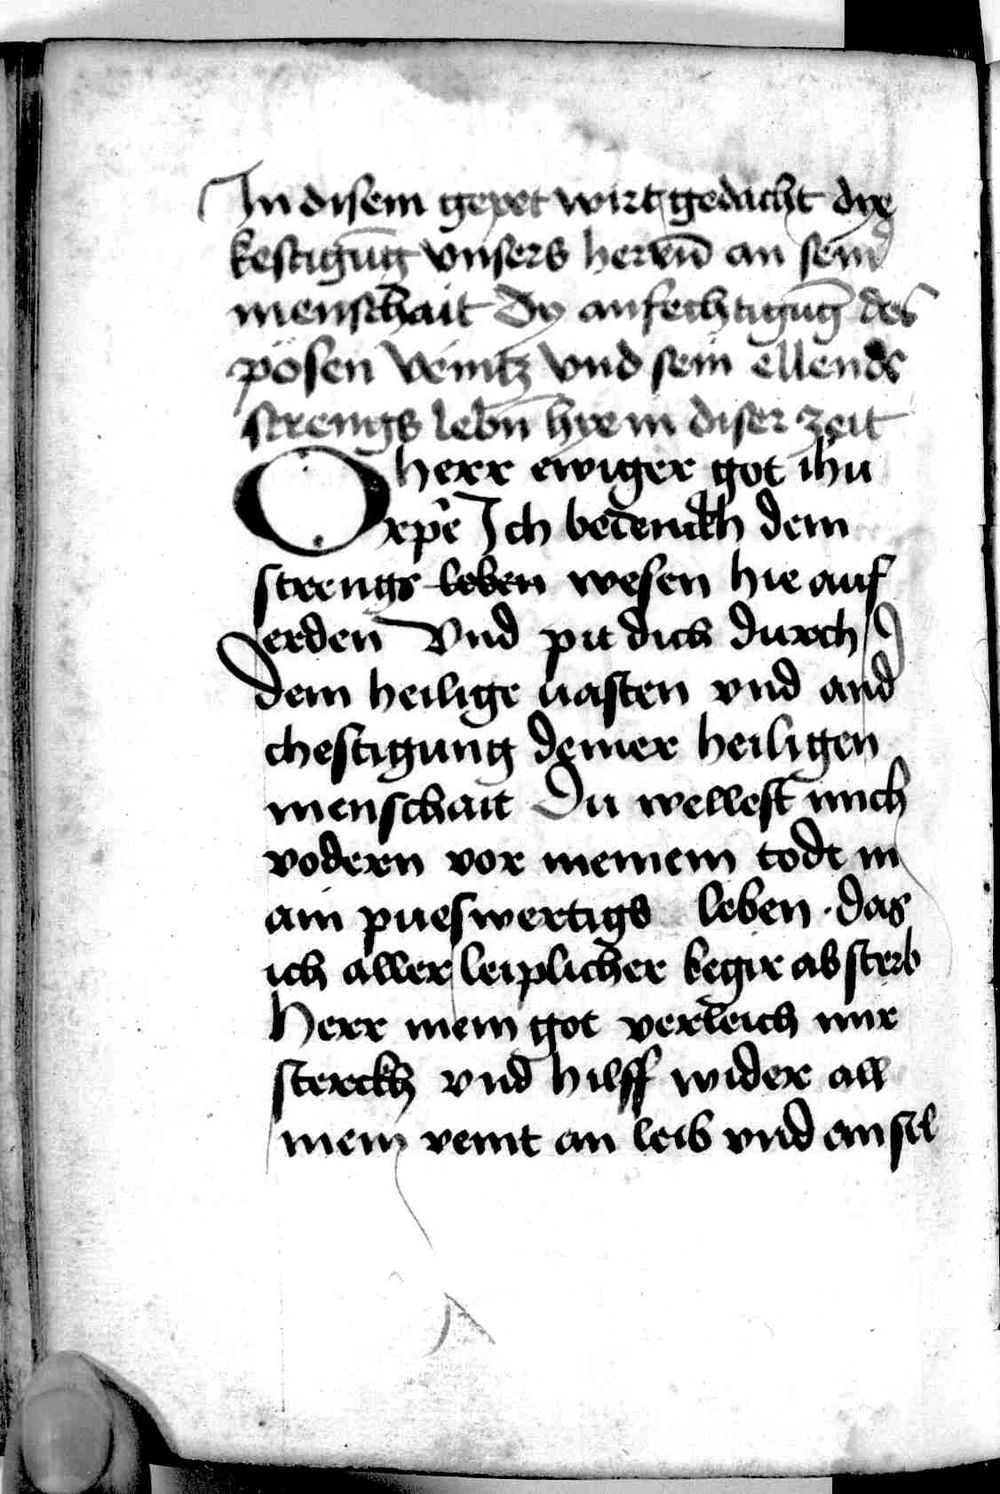 In disem gepet wirt gedacht dye
kestigūg vnsers herrn̄ an sein̄
menschait Dy anfechtigūg des
pösen veintz vnd sein ellends
strengs lebn̄ hye in diser zeit
O herr ewiger got ihū
xpē Ich bedenckh dein
strengs leben wesen hie auf
erden Vnd pit dich durch
dein heilige uasten vnd and
chestigung deiner heiligen
menschait Du wellest mich
vodern vor meinem todt in
ain pueswertigs leben · das
ich aller leiplicher begir absterb
Herr mein got verleich mir
sterckh vnd hilff wider all
mein veint an leib vnd an sel